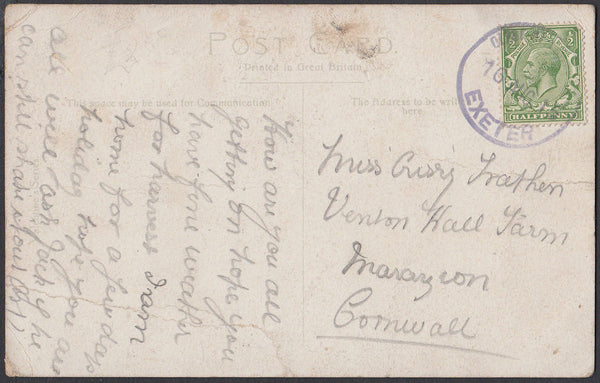 POST CARD.
Printed in Great Britain
This space may be used for Communication
The Address to be written here.
EXETER
½ ½
HALFPENNY
How are you all
getting on hope you
have fine weather
for harvest I am
home for a few days
holiday hope you are
all well ask Jack if he
can still shave
Miss
Venton Hall Farm
Marazion
Cornwall